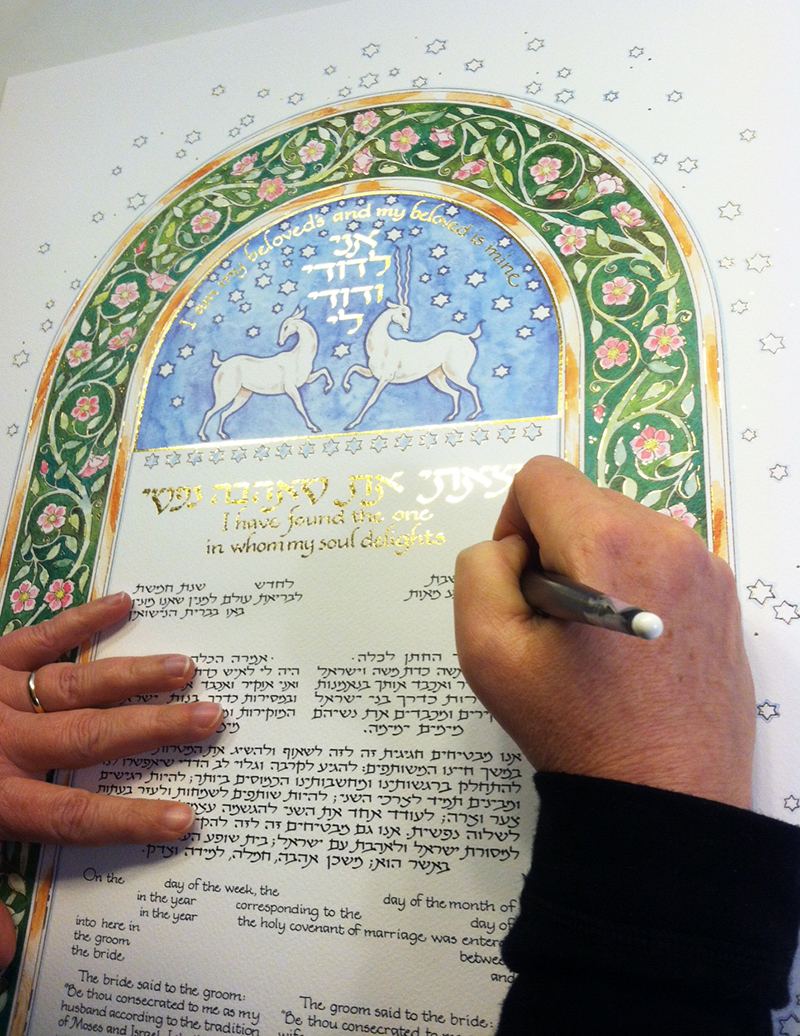 I am my beloved's and my beloved is mine
אני
לדודי
ודודי
לי
את שאהבה נפשי
I have found the one
in whom my soul delights
לחדש שנת חמשת
לבריאת עולם למנין שאנו מונין
באו בברית הנישואין
מאות
החתן לכלה:
כדת משה וישראל
ואכבד אותך בנאמנות
כדרך בני ישראל
ומכבדים את נשיהם
מימים ימימה.
אמרה הכלה
היה לי לאיש כדת
ואני אוקיר ואכבד
ובמסירות כדרך בנות
המוקירות
אנו מבטיחים חגיגית זה לזה לשאוף ולהשיג את המטרות
במשך חיינו המשותפים: להגיע לקרבה וגלוי לב הדדי שיאפשרו לנו
להתחלק ברגשותינו ומחשבותינו הכמוסים ביותר; להיות רגישים
ומבינים תמיד לצרכי השני; להיות שותפים לשמחות ולעזר בעתות
צער וצרה; לעודד אחד את השני להגשמה
לשלוה נפשית. אנו גם מבטיחים זה לזה
למסורת ישראל ולאהבת עם ישראל; בית שופע
באשר הוא; משכן אהבה, חמלה, למידה וצדק.
On the day of the week, the day of the month of
in the year corresponding to the day of
in the year the holy covenant of marriage was
into here in between
the groom and
the bride
The bride said to the groom:
"Be thou consecrated to me as my
husband according to the tradition
of Moses and Israel
The groom said to the bride:
"Be thou consecrated to me as my